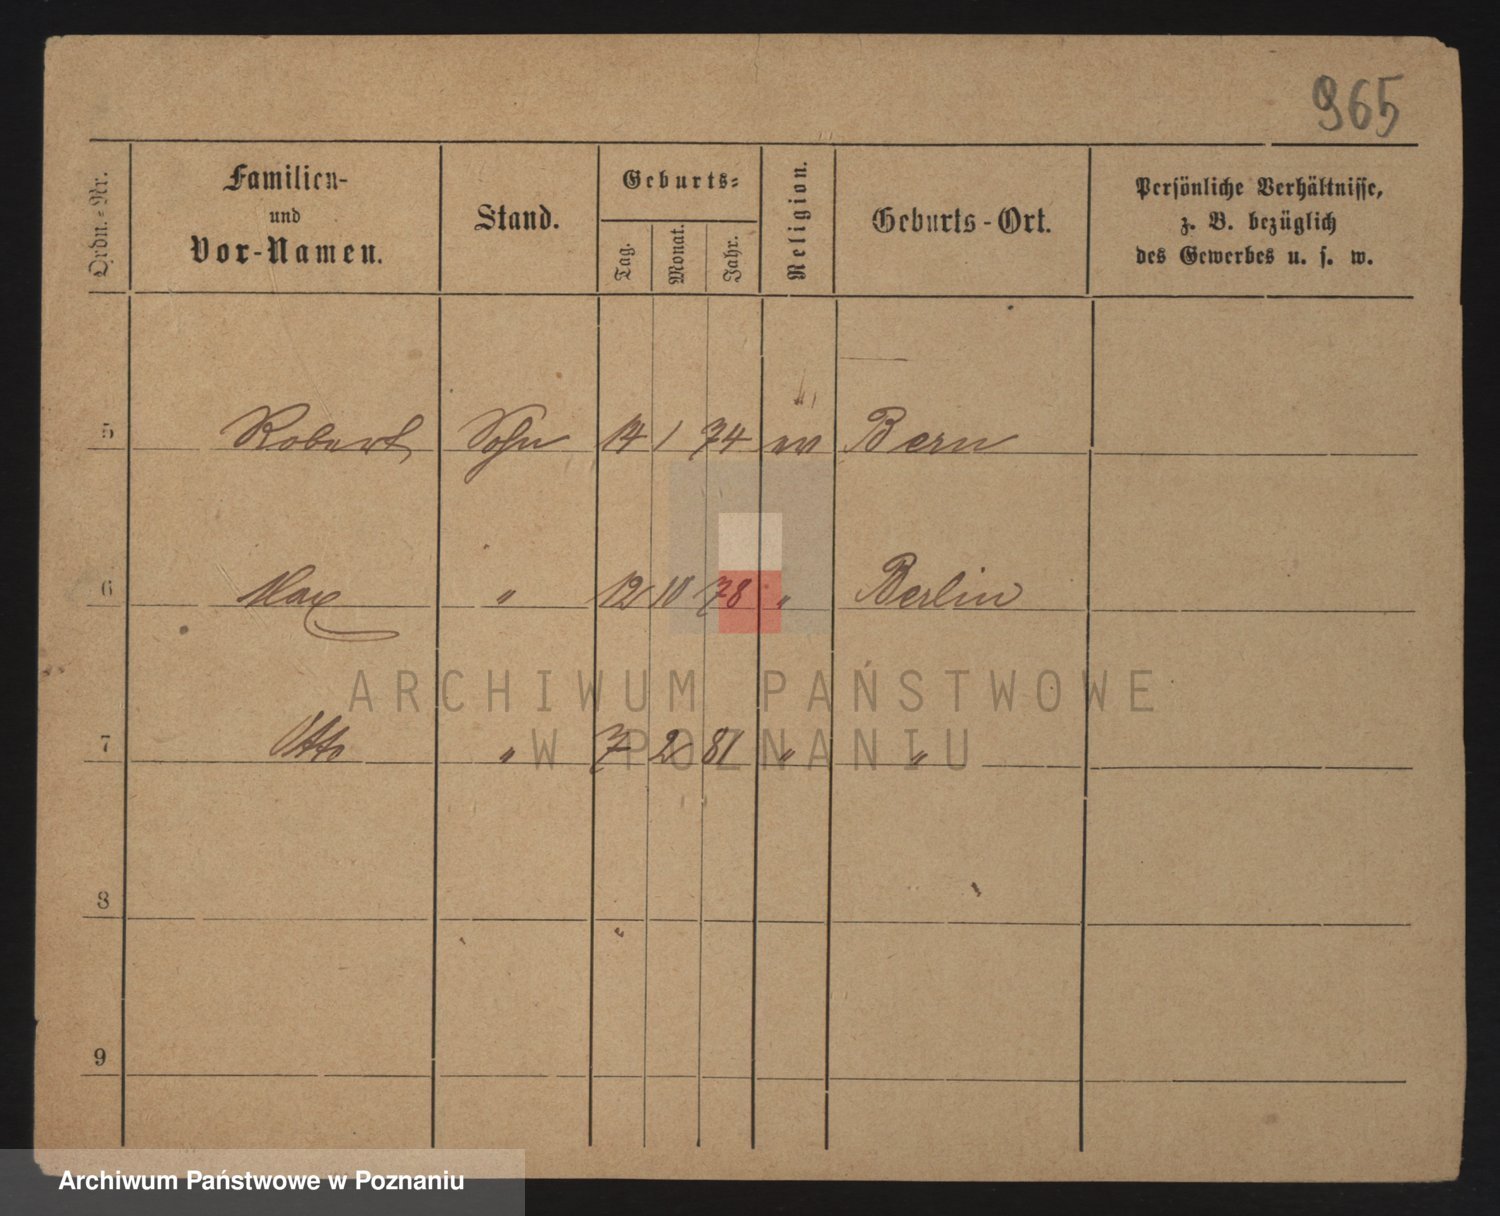 965
Ordn.-Nr.
Familien-
und
Vor-Namen.
Stand.
Geburts-
Tag.
Monat.
Jahr.
Religion.
Geburts-Ort.
Persönliche Verhältnisse,
z. B. bezüglich
des Gewerbes u. s. w.
5 Robert Sohn 14 1 74 ev Bern
6 Max " 12 10 78 " Berlin
ARCHIWUM PAŃSTWOWE
7 Otto " 7 2 81 " "
W POZNANIU
8
9
Archiwum Państwowe w Poznaniu